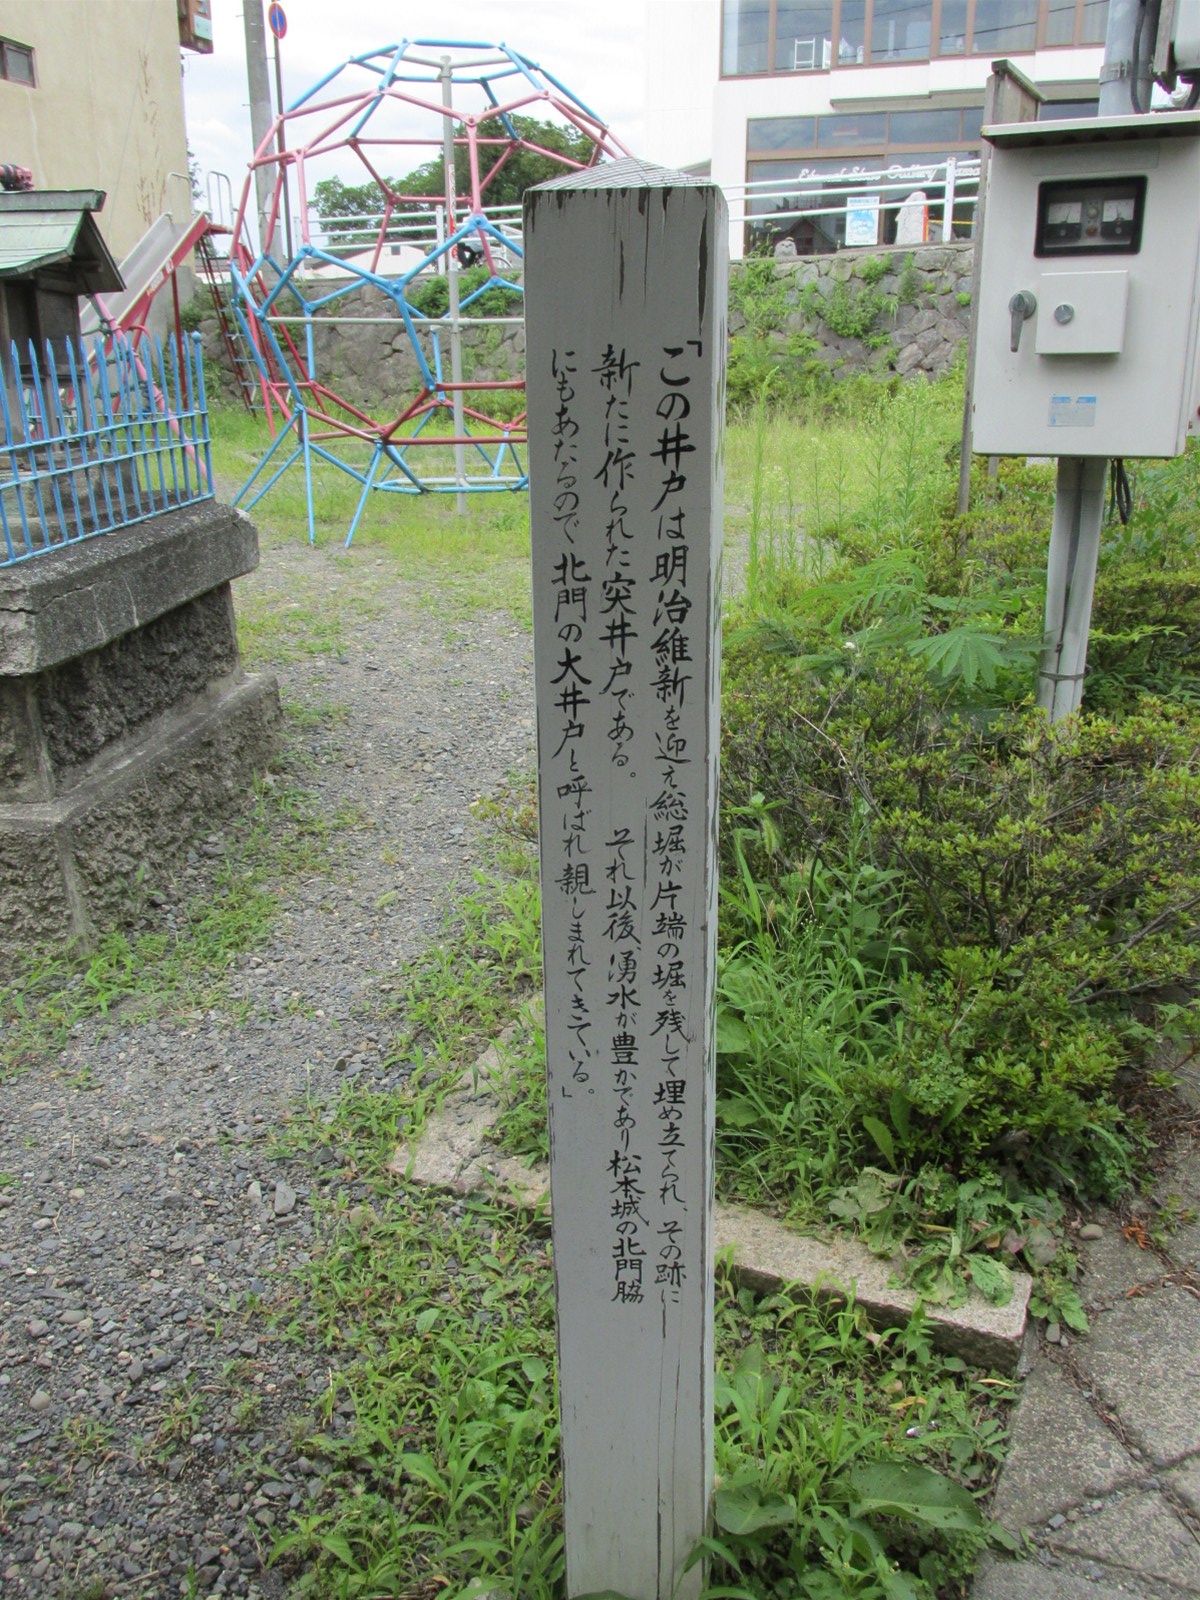 「この井戸は明治維新を迎え総堀が片端の堀を残して埋め立てられ、その跡に
新たに作られた突井戸である。　それ以後、湧水が豊かであり松本城の北門脇
にもあたるので北門の大井戸と呼ばれ親しまれてきている。」